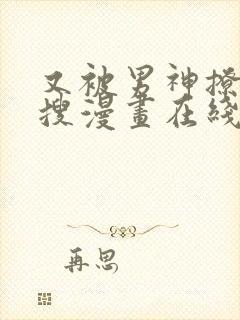 又被男神撩
搜漫畫在綫
再思